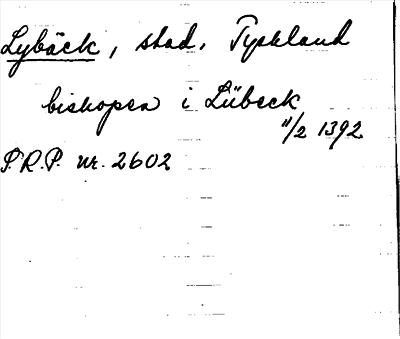 Lybäck, stad, Tyskland
biskopen i Lübeck
11/2 1392
S.R.P. nr. 2602